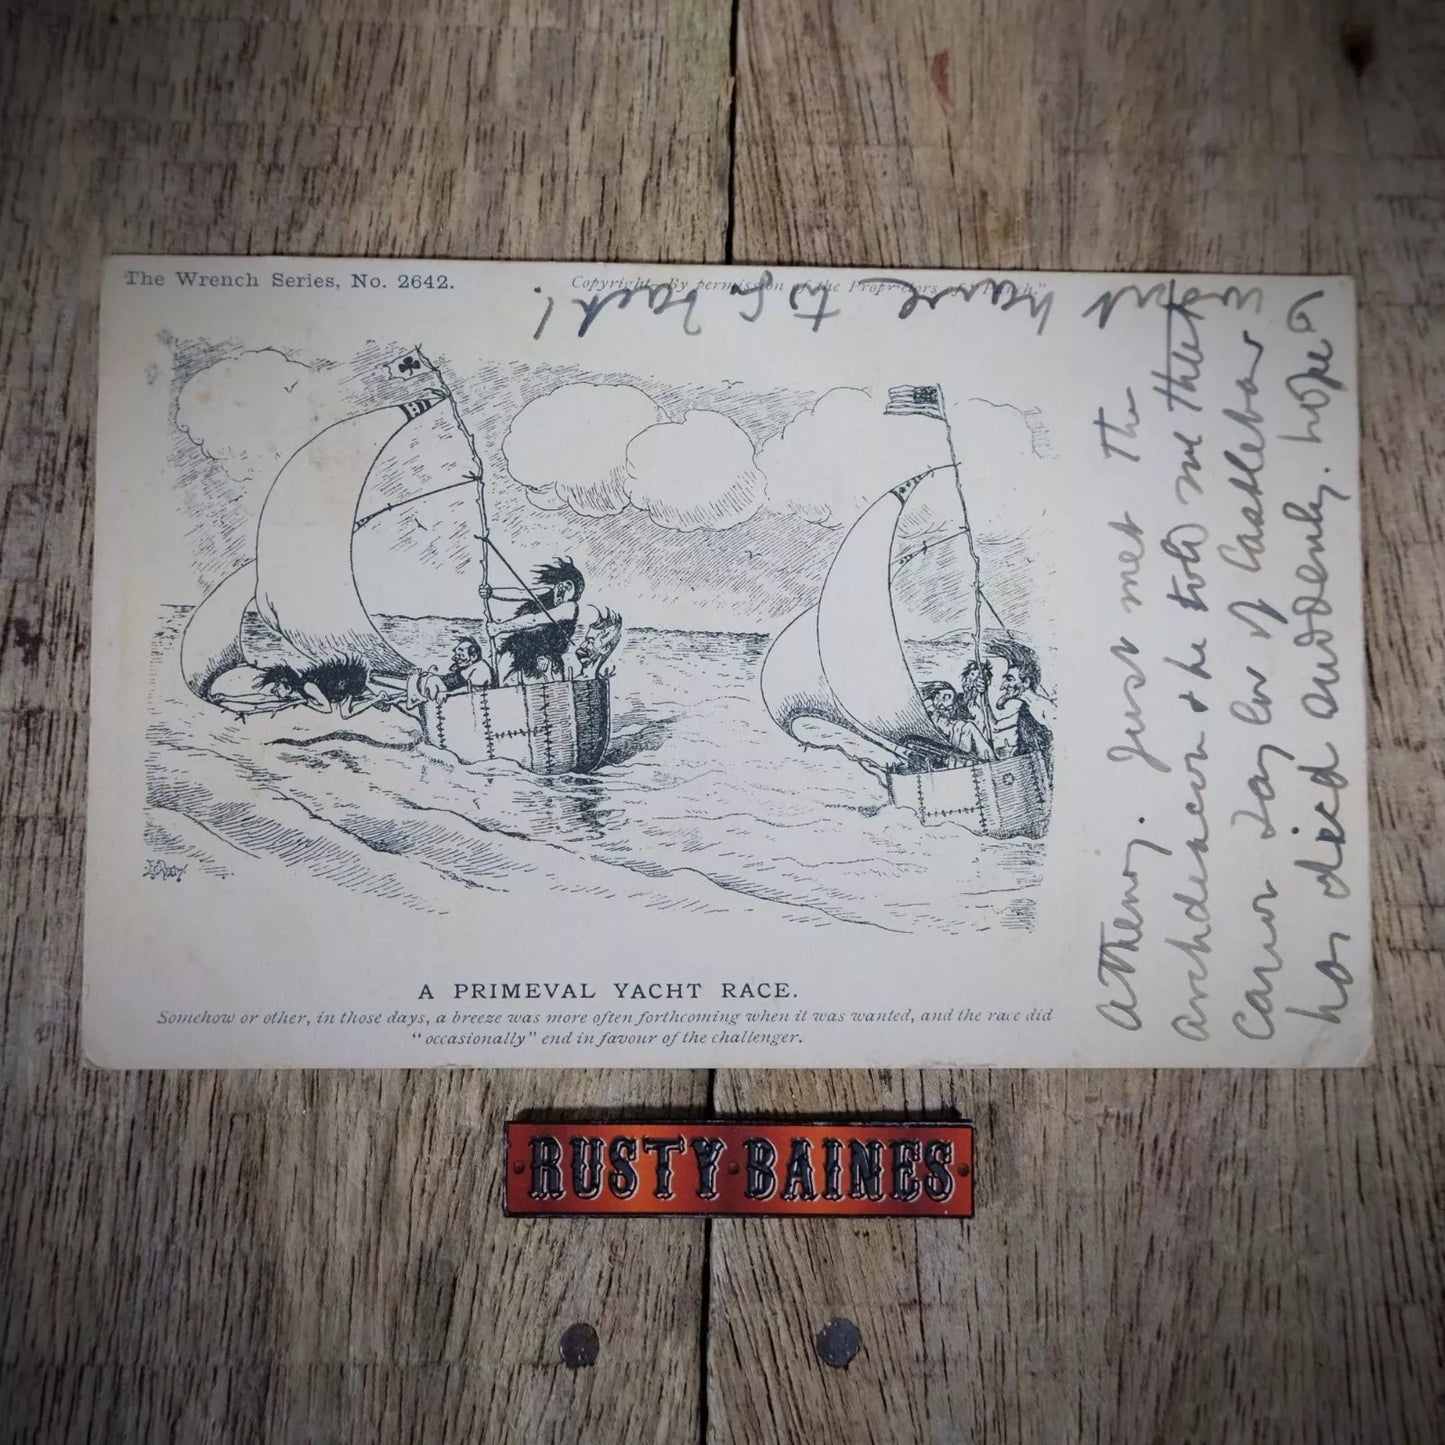 The Wrench Series, No. 2642.
Copyright—By permission of the Proprietors of "Punch"
A PRIMEVAL YACHT RACE.
Somehow or other, in those days, a breeze was more often forthcoming when it was wanted, and the race did
"occasionally" end in favour of the challenger.
Athenry. Just met the
archdeacon & he told me that
Canon of Castlebar
has died suddenly. hope
I won't have to go back!
RUSTY·BAINES